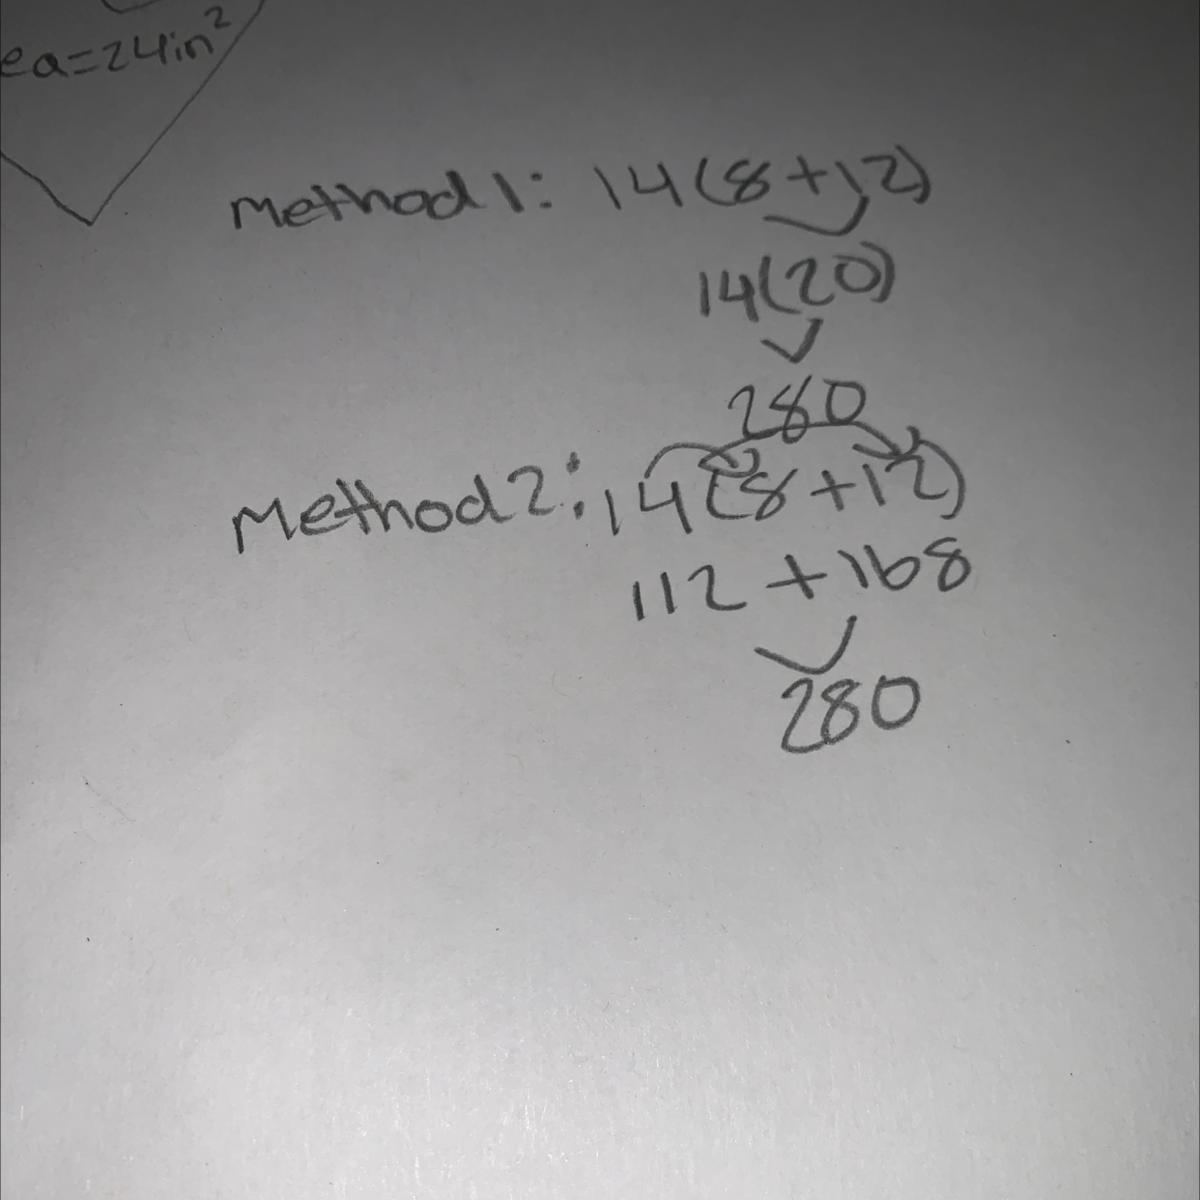 ea=24in²
Method 1: 14(8+12)
14(20)
280
Method 2: 14(8+12)
112 + 168
280